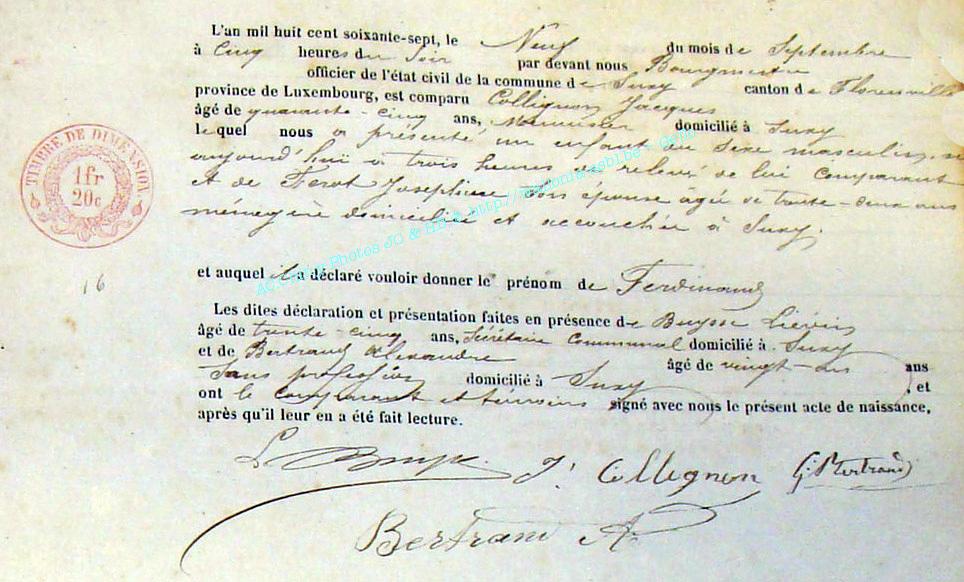 L'an mil huit cent soixante-sept, le Neuf du mois de Septembre
à Cinq heures du Soir par devant nous Bourgmestre
officier de l'état civil de la commune de Suxy canton de Florenville
province de Luxembourg, est comparu Collignon Jacques
âgé de quarante-cinq ans, Menuisier domicilié à Suxy
lequel nous a présenté un enfant du Sexe masculin, né
aujourd'hui à trois heures de relevé de lui Comparant
et de Jos\u00e9phine son épouse âgée de trente-deux ans
ménagère domiciliée et accouchée à Suxy.
TIMBRE DE DIMENSION
1 fr
20 c
16
et auquel il a déclaré vouloir donner le prénom de Ferdinand
Les dites déclaration et présentation faites en présence de Buysse Liévin
âgé de trente-cinq ans, Secrétaire Communal domicilié à Suxy
et de Bertrand Alexandre âgé de vingt-un ans
Sans profession domicilié à Suxy et
ont le comparant et témoins signé avec nous le présent acte de naissance,
après qu'il leur en a été fait lecture.
L. Buysse J. Collignon G. Bertrand
Bertrand A.